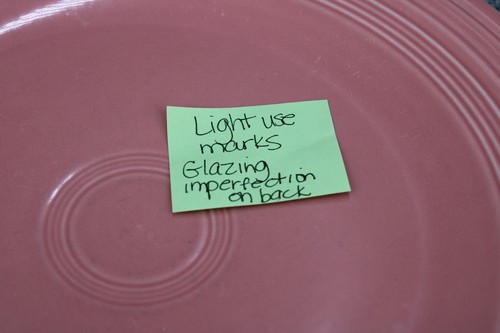 Light use
marks
Glazing
imperfection
on back